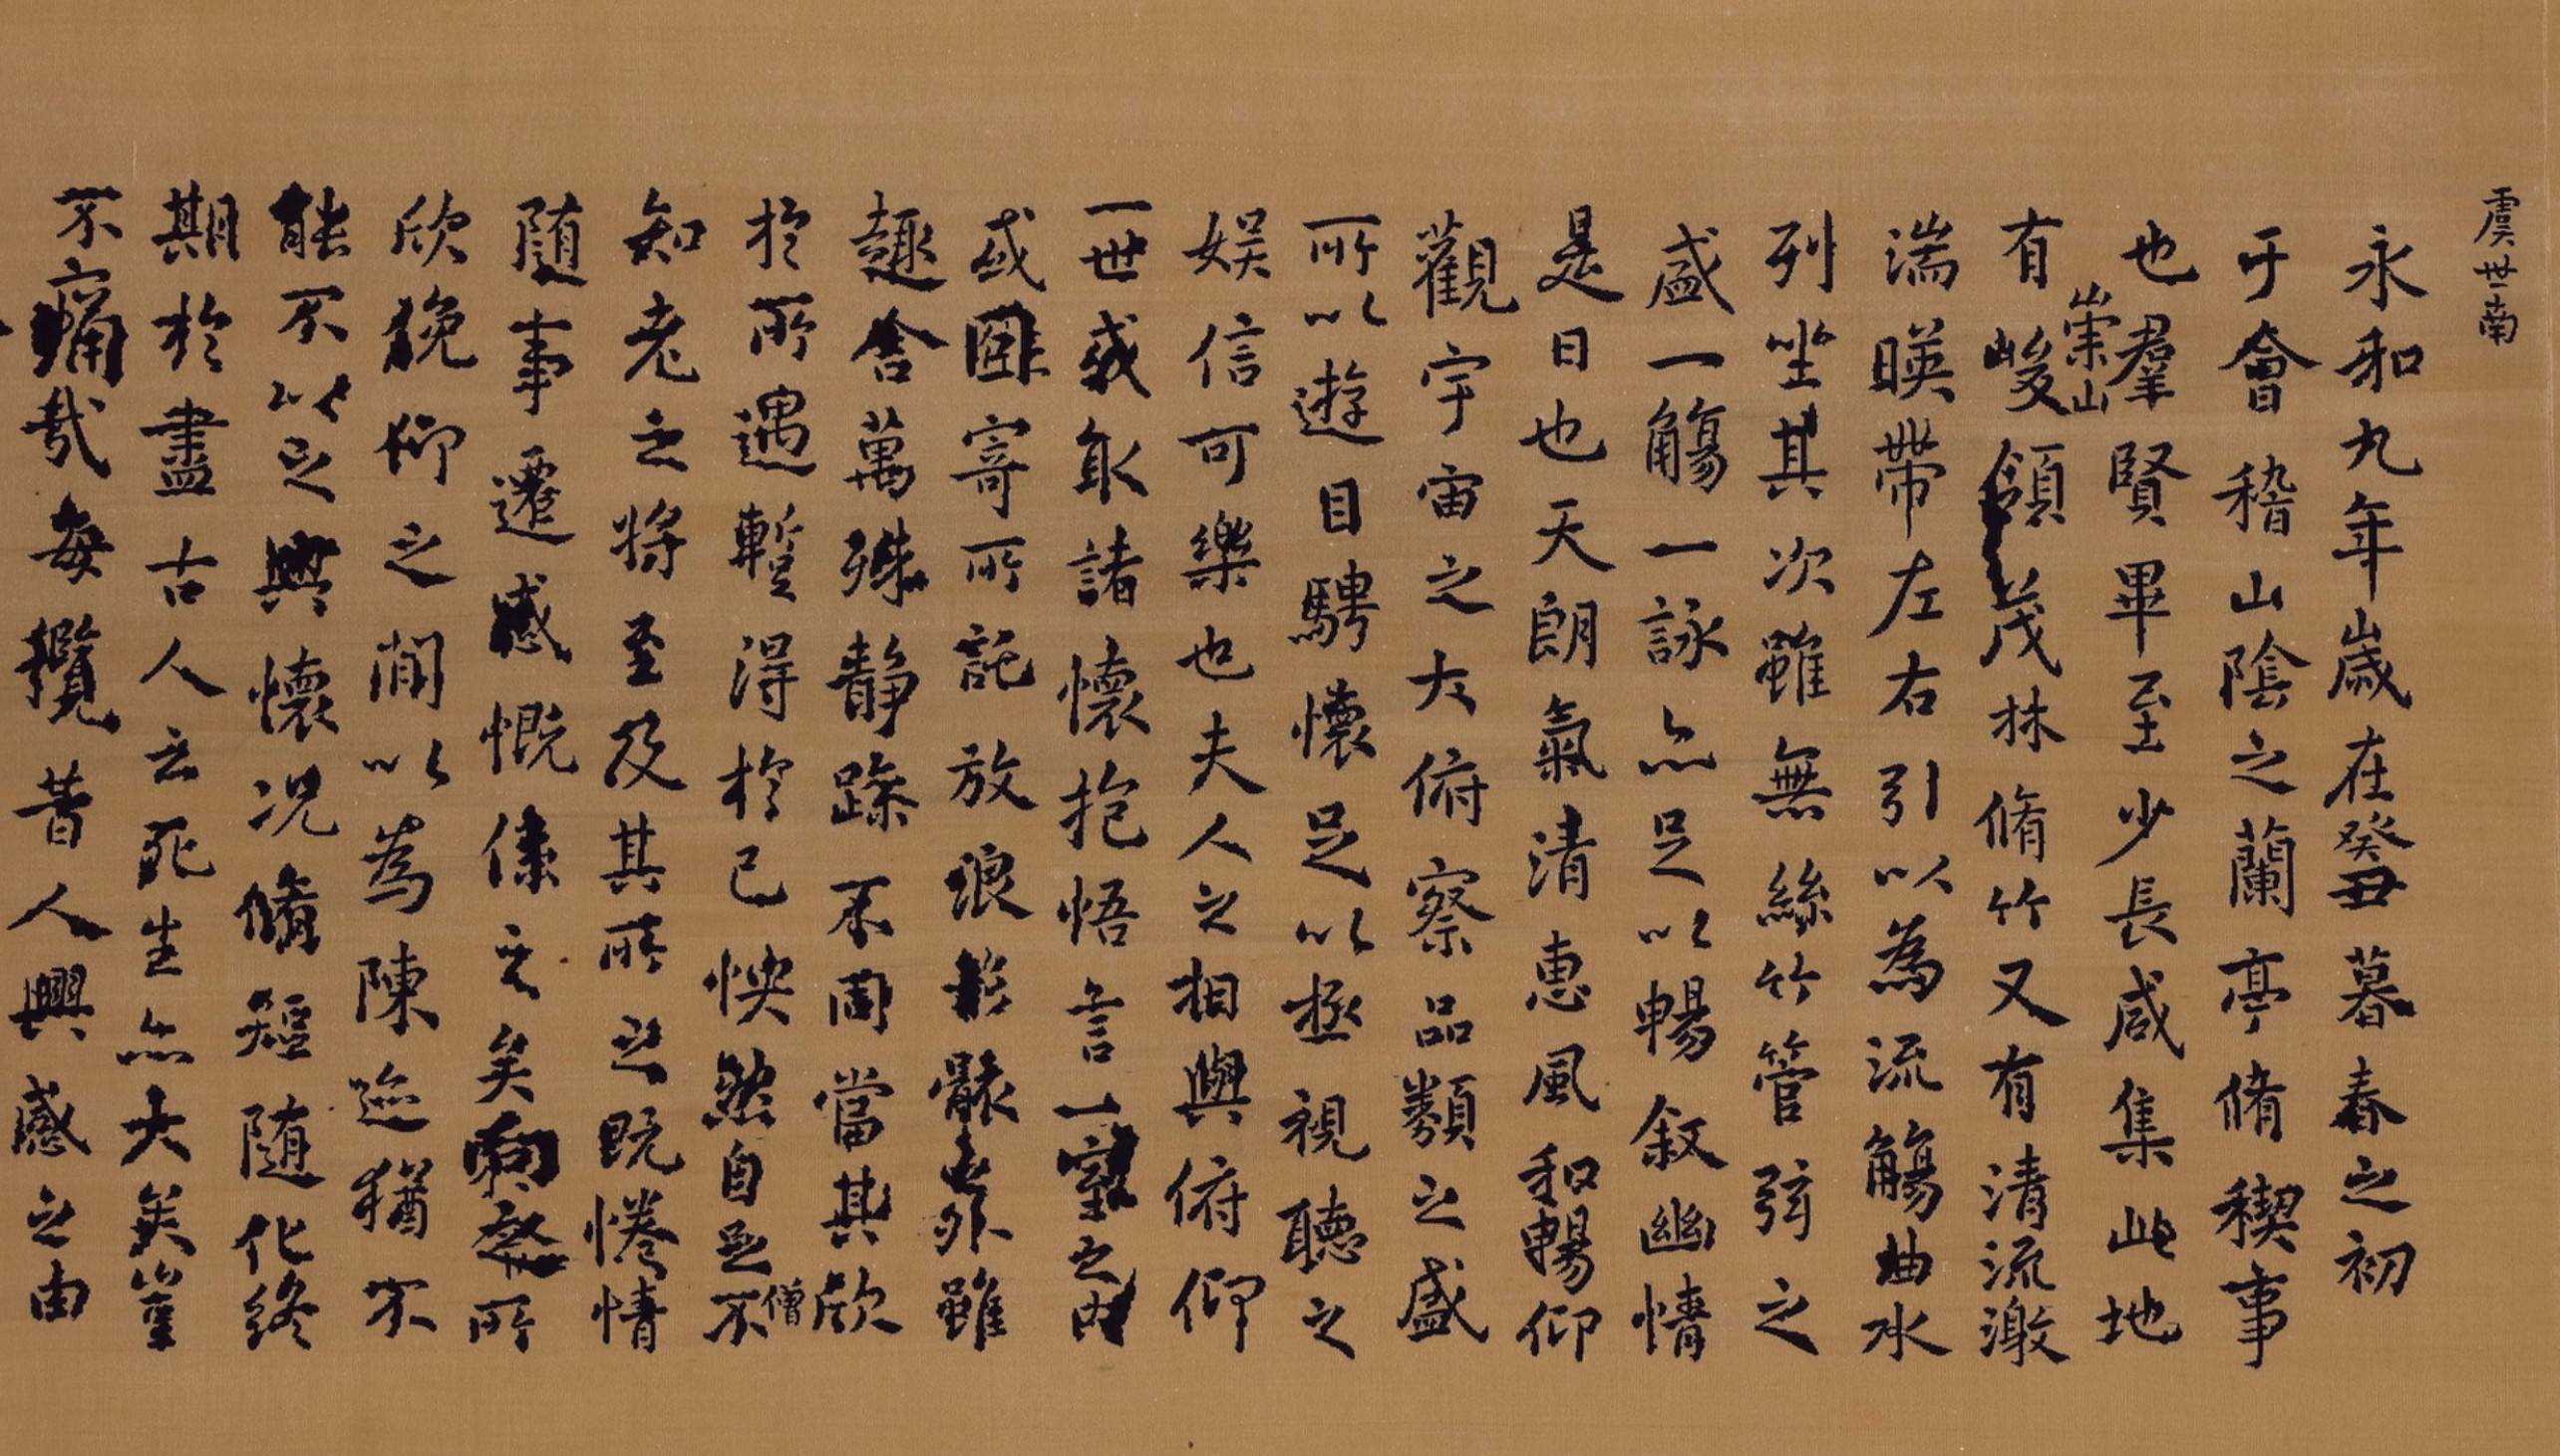 虞世南
永和九年歲在癸丑暮春之初
于會稽山陰之蘭亭脩稧事
也羣賢畢至少長咸集此地
崇山
有峻領茂林脩竹又有清流激
湍暎帶左右引以為流觴曲水
列坐其次雖無絲竹管弦之
盛一觴一詠亦足以暢叙幽情
是日也天朗氣清惠風和暢仰
觀宇宙之大俯察品類之盛
所以遊目騁懷足以極視聽之
娛信可樂也夫人之相與俯仰
一世或取諸懷抱悟言一室之內
或因寄所託放浪形骸之外雖
趣舍萬殊静躁不同當其欣
於所遇蹔得於己怏然自足不
僧
知老之將至及其所之既惓情
随事遷感慨係之矣向之所
欣俛仰之閒以為陳迹猶不
能不以之興懷况脩短随化終
期於盡古人云死生亦大矣豈
不痛哉每攬昔人興感之由